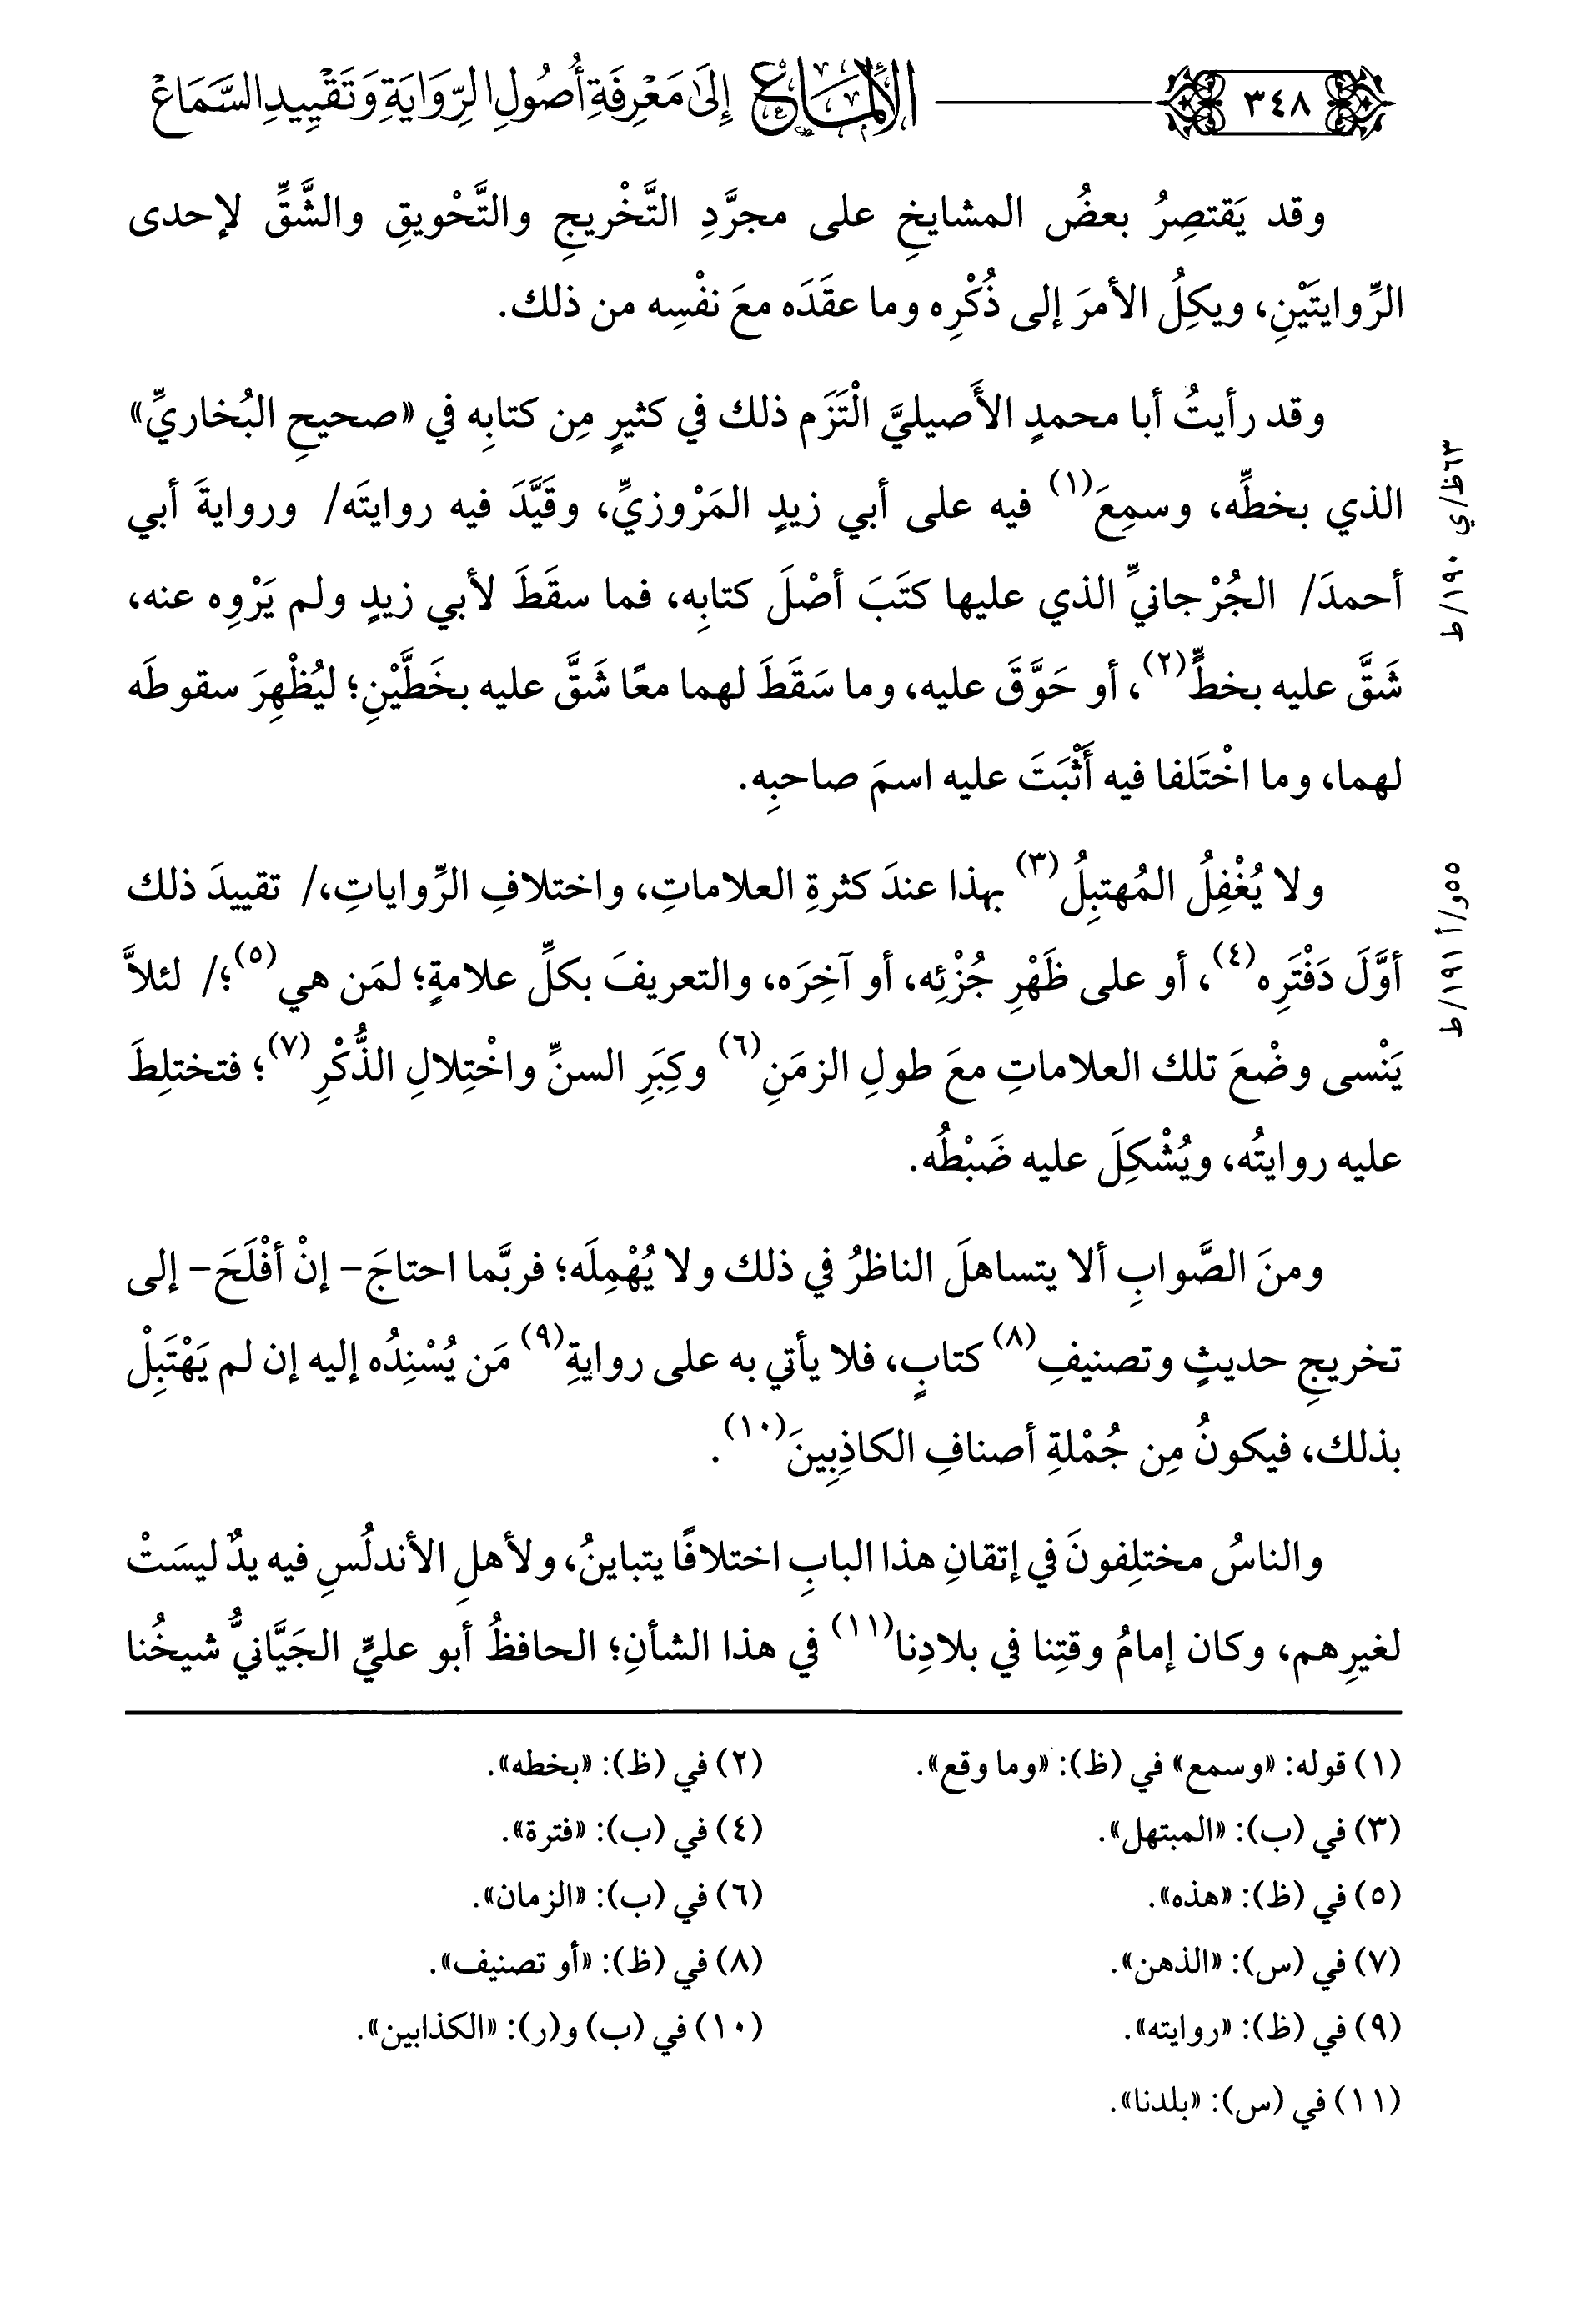 ٣٤٨
الإلماع إِلَىٰ مَعْرِفَةِ أُصُولِ الرِّوَايَةِ وَتَقْيِيدِ السَّمَاعْ
وقد يَقتصِرُ بعضُ المشايخِ على مجرَّدِ التَّخْريجِ والتَّحْويقِ والشَّقِّ لإحدى
الرِّوايتَيْنِ، ويكِلُ الأمرَ إلى ذُكْرِه وما عقَدَه معَ نفْسِه من ذلك.
وقد رأيتُ أبا محمدٍ الأَصيليَّ الْتَزَم ذلك في كثيرٍ مِن كتابِه في «صحيحِ البُخاريِّ»
الذي بخطِّه، وسمِعَ(١) فيه على أبي زيدٍ المَرْوزيِّ، وقَيَّدَ فيه روايتَه/ وروايةَ أبي
٦٣ظ/ي
أحمدَ/ الجُرْجانيِّ الذي عليها كتَبَ أصْلَ كتابِه، فما سقَطَ لأبي زيدٍ ولم يَرْوِه عنه،
١٩٠/ط
شَقَّ عليه بخطٍّ(٢)، أو حَوَّقَ عليه، وما سَقَطَ لهما معًا شَقَّ عليه بخَطَّيْنِ؛ ليُظْهِرَ سقوطَه
لهما، وما اخْتَلفا فيه أَثْبَتَ عليه اسمَ صاحبِه.
ولا يُغْفِلُ المُهتبِلُ(٣) بهذا عندَ كثرةِ العلاماتِ، واختلافِ الرِّواياتِ،/ تقييدَ ذلك
٥٥و/أ
أوَّلَ دَفْتَرِه(٤)، أو على ظَهْرِ جُزْئِه، أو آخِرَه، والتعريفَ بكلِّ علامةٍ؛ لمَن هي(٥)؛/ لئلاَّ
١٩١/ط
يَنْسى وضْعَ تلك العلاماتِ معَ طولِ الزمَنِ(٦) وكِبَرِ السنِّ واخْتِلالِ الذُّكْرِ(٧)؛ فتختلِطَ
عليه روايتُه، ويُشْكِلَ عليه ضَبْطُه.
ومنَ الصَّوابِ ألا يتساهلَ الناظرُ في ذلك ولا يُهْمِلَه؛ فربَّما احتاجَ- إنْ أفْلَحَ- إلى
تخريجِ حديثٍ وتصنيفِ(٨) كتابٍ، فلا يأتي به على روايةِ(٩) مَن يُسْنِدُه إليه إن لم يَهْتَبِلْ
بذلك، فيكونُ مِن جُمْلةِ أصنافِ الكاذِبِينَ(١٠).
والناسُ مختلِفونَ في إتقانِ هذا البابِ اختلافًا يتباينُ، ولأهلِ الأندلُسِ فيه يدٌ ليسَتْ
لغيرِهم، وكان إمامُ وقتِنا في بلادِنا(١١) في هذا الشأنِ؛ الحافظُ أبو عليٍّ الجَيَّانيُّ شيخُنا
(١) قوله: «وسمع» في (ظ): «وما وقع».
(٢) في (ظ): «بخطه».
(٣) في (ب): «المبتهل».
(٤) في (ب): «فترة».
(٥) في (ظ): «هذه».
(٦) في (ب): «الزمان».
(٧) في (س): «الذهن».
(٨) في (ظ): «أو تصنيف».
(٩) في (ظ): «روايته».
(١٠) في (ب) و(ر): «الكذابين».
(١١) في (س): «بلدنا».